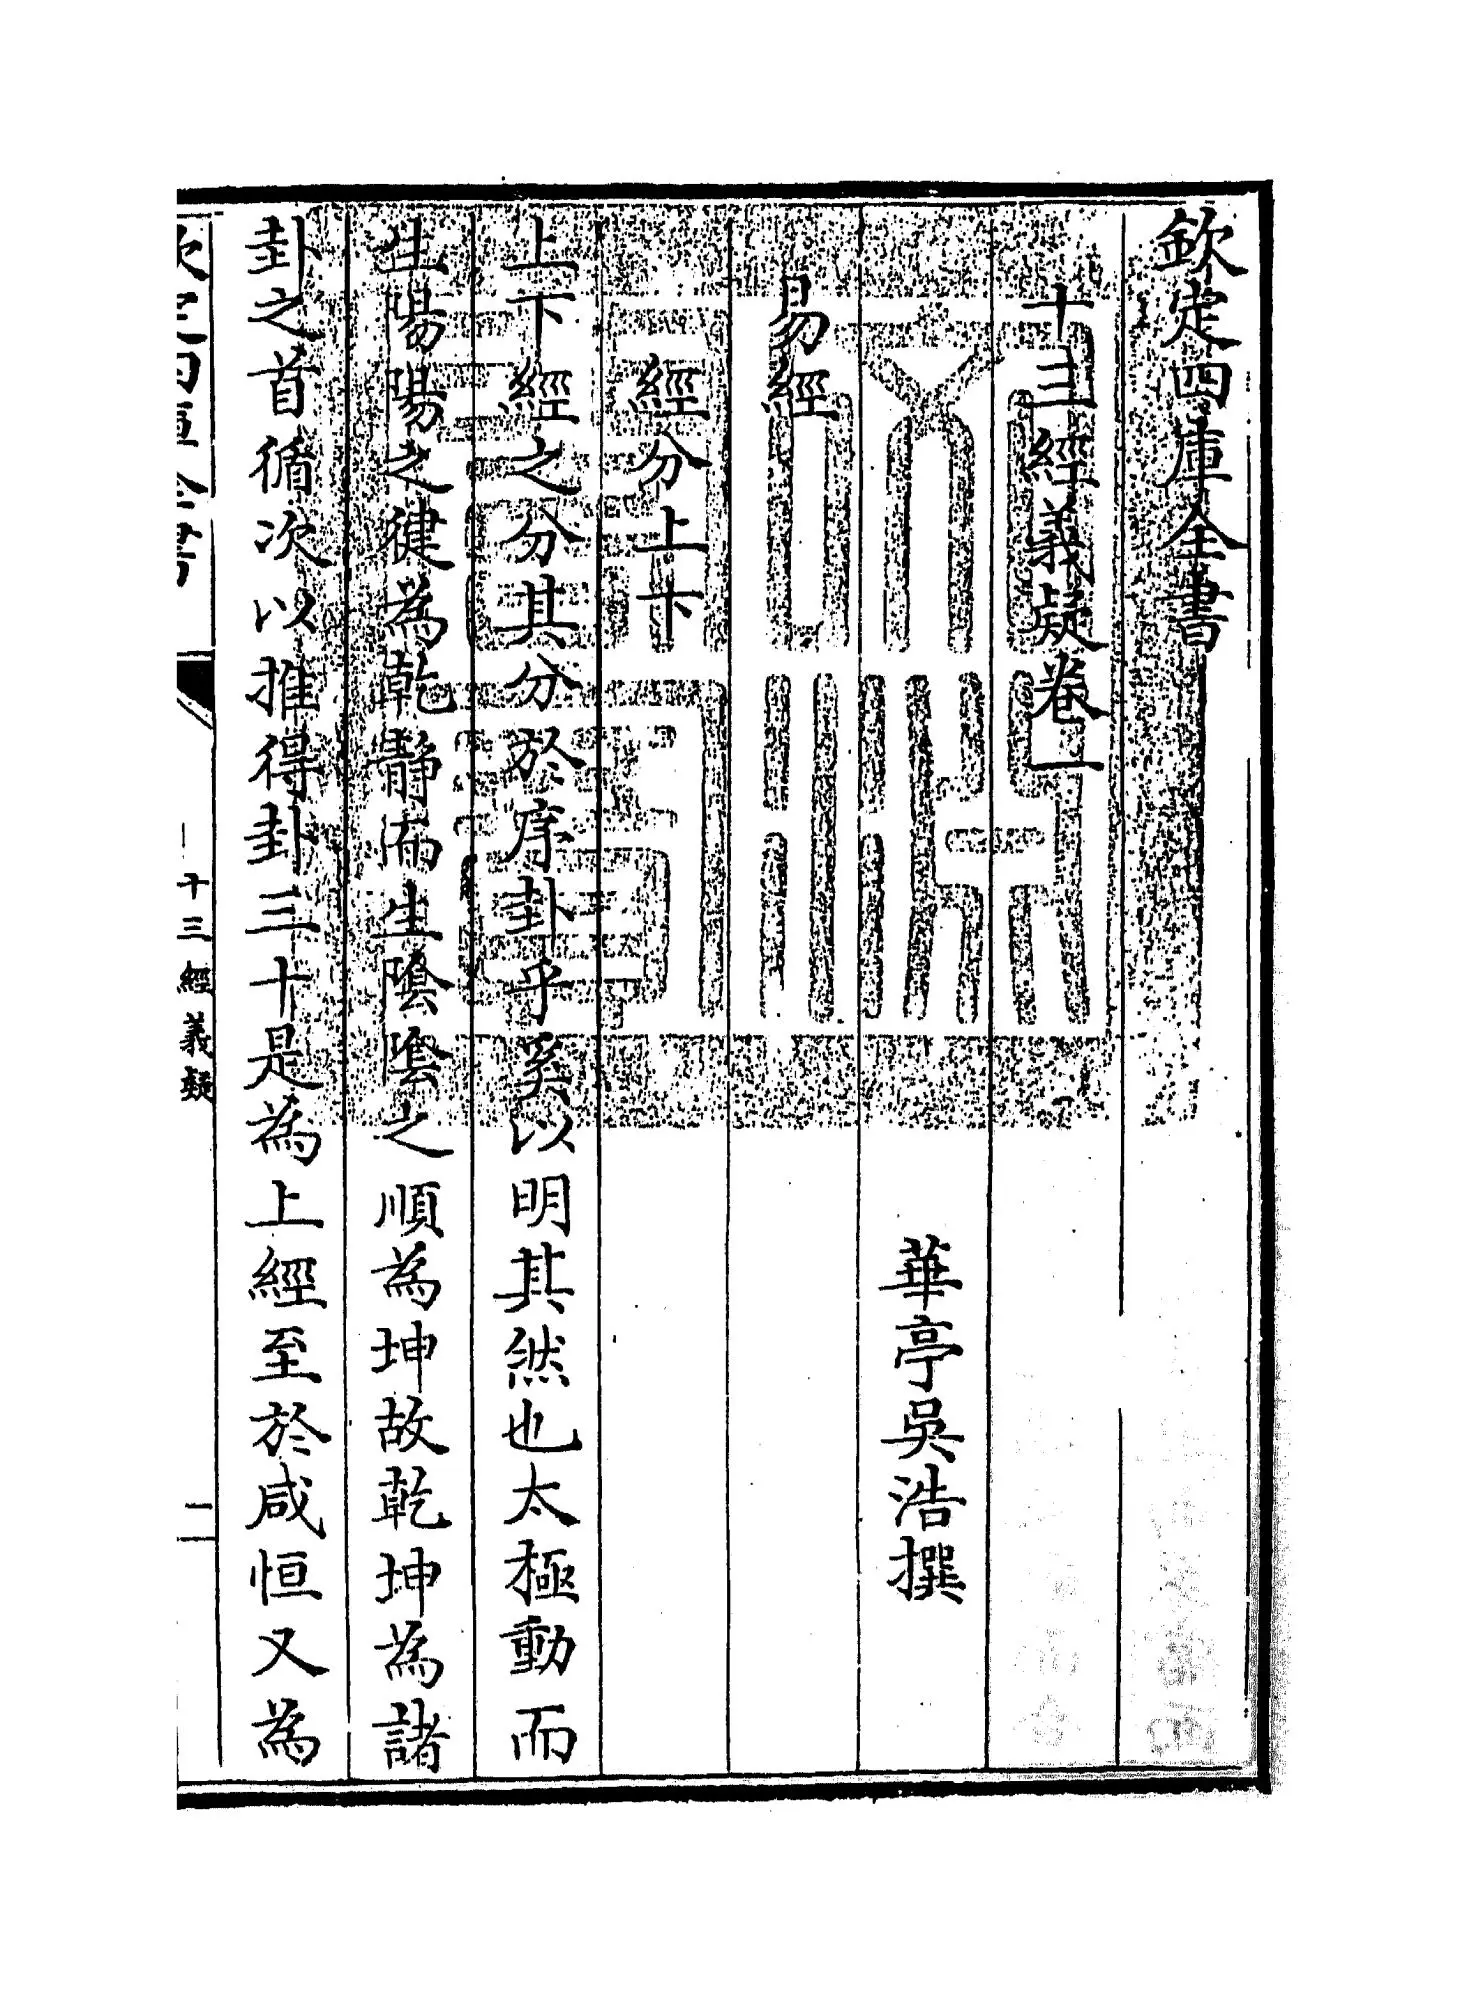 欽定四庫全書
十三經義疑卷一
華亭吳浩撰
易經
經分上下
上下經之分其分於序卦乎奚以明其然也太極動而
生陽陽之健為乾靜而生陰陰之順為坤故乾坤為諸
卦之首循次以推得卦三十是為上經至於咸恒又為
欽定四庫全書
十三經義疑
二